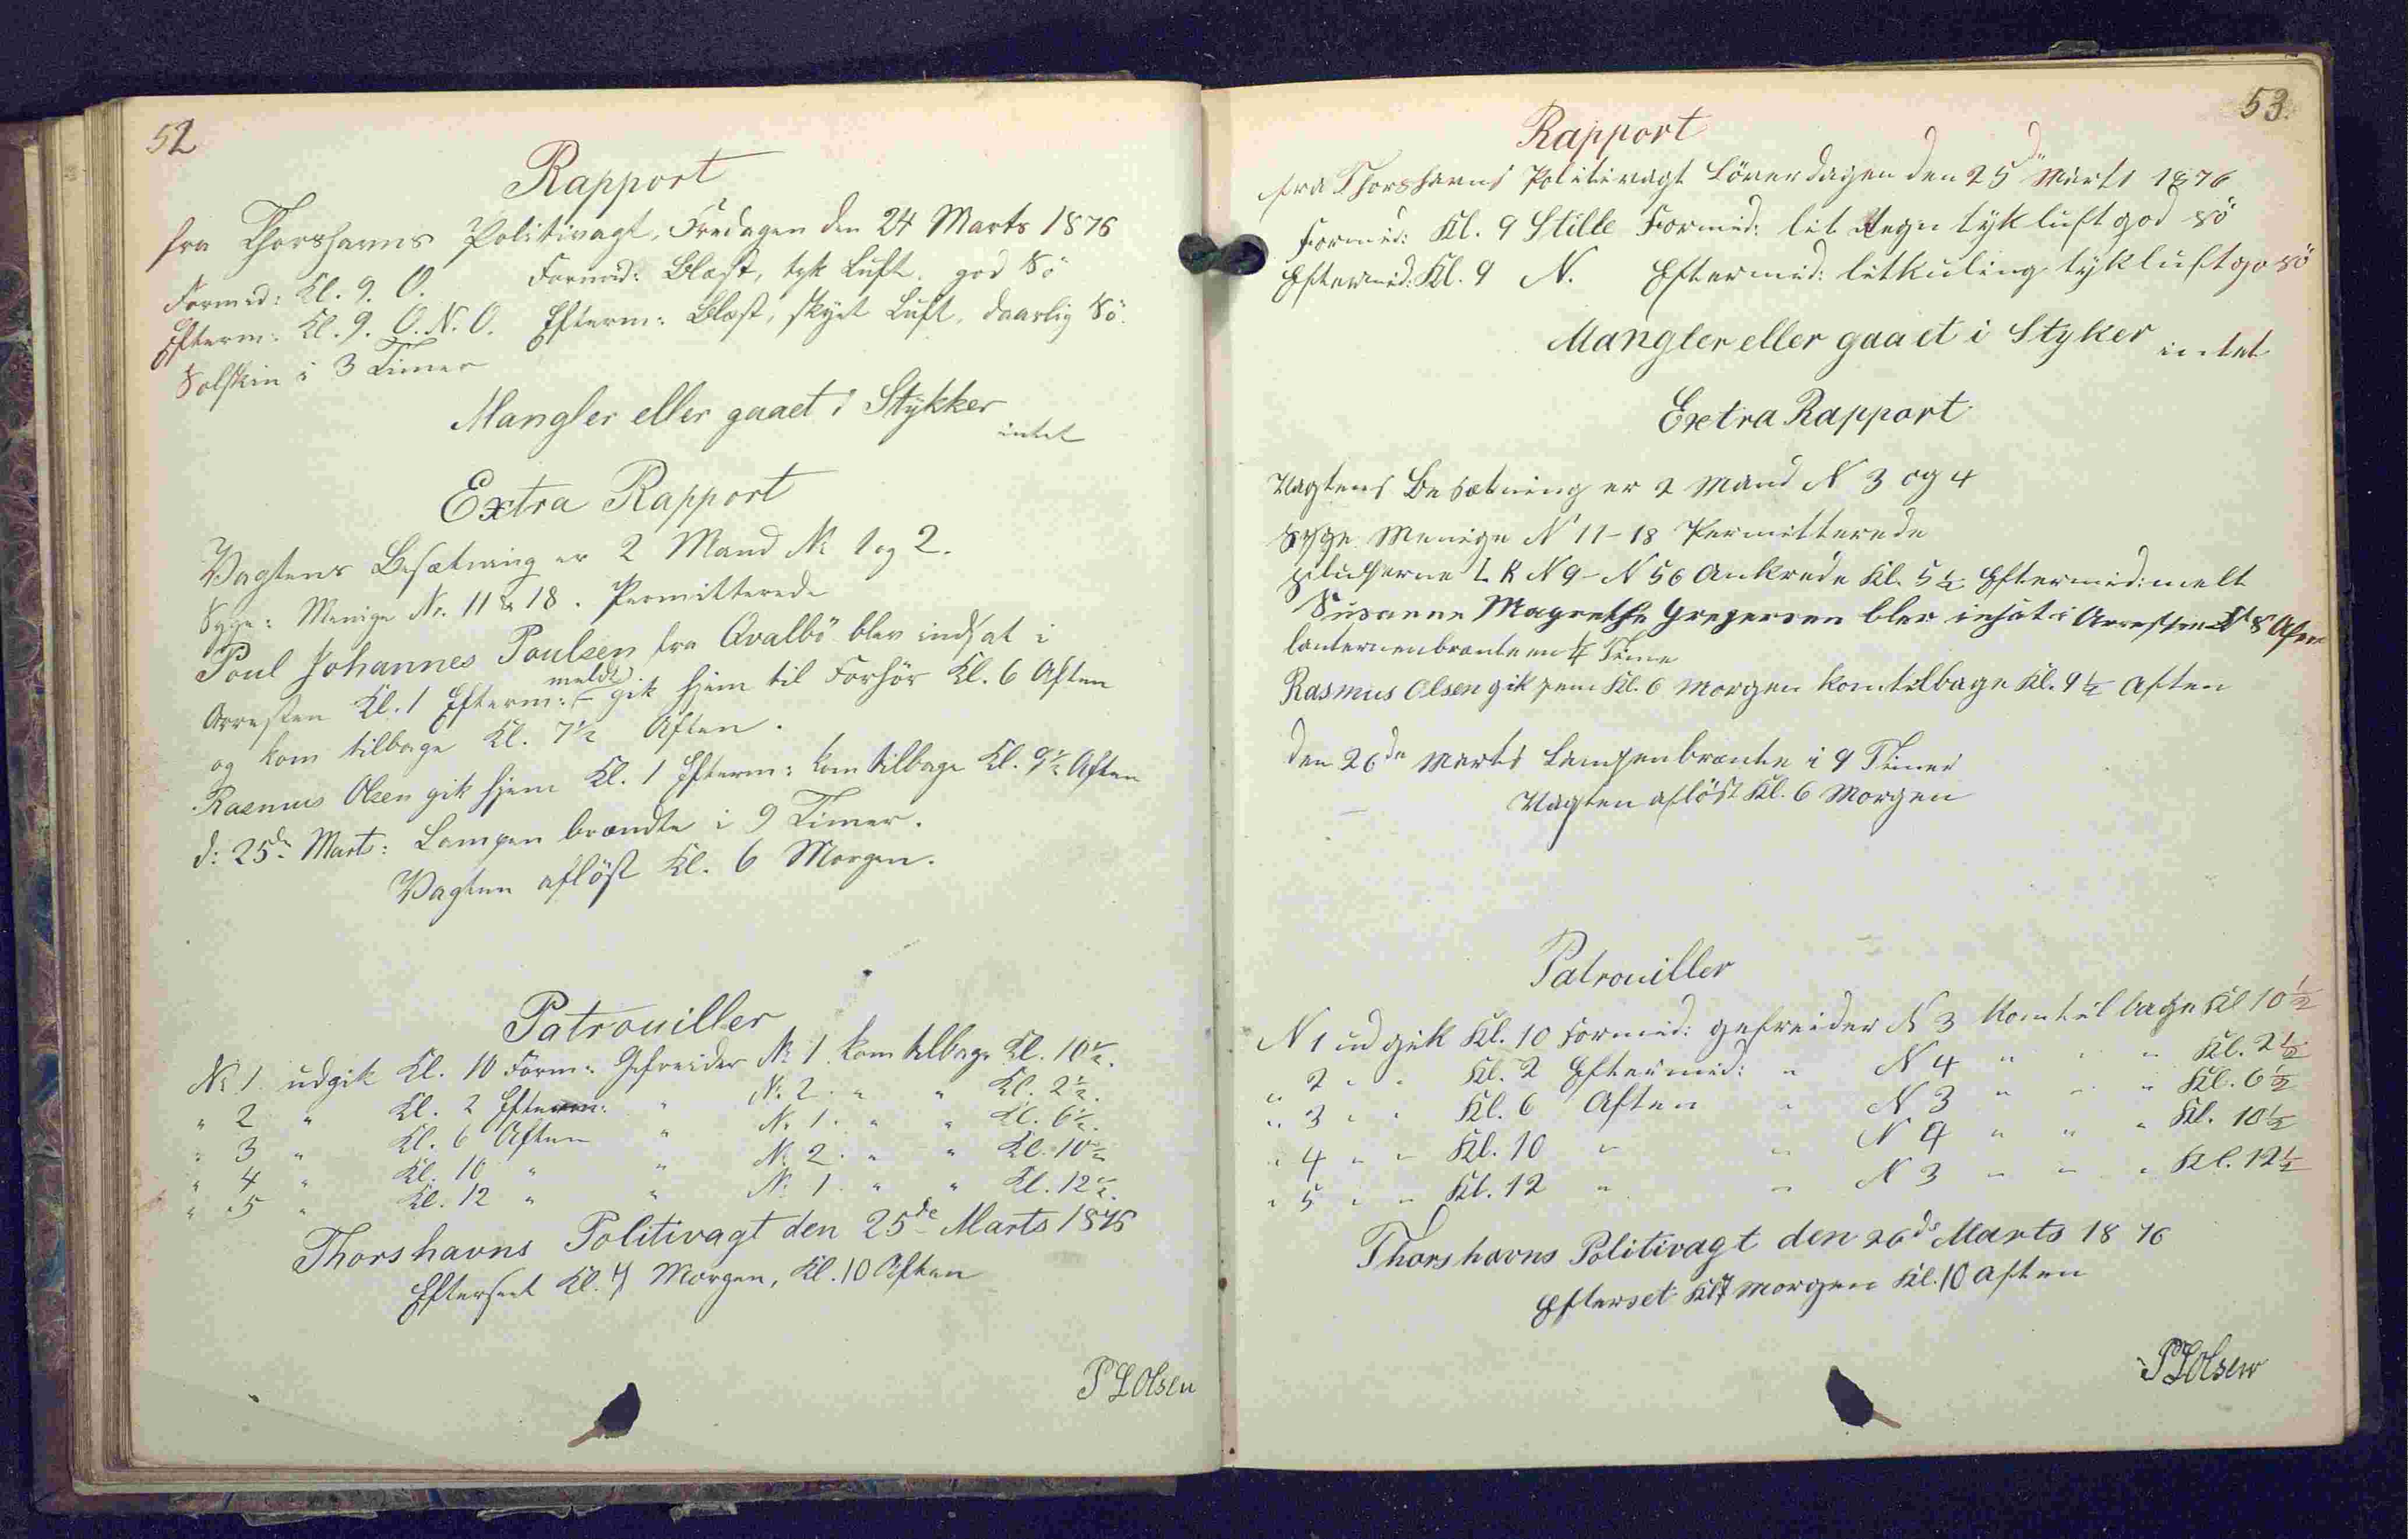 52
Rapport
fra Thorshavns Politivagt, Fredagen den 24 Marts 1876
Formid: Kl. 9. O. Formid: Blæst, tyk Luft. god Sö
Efterm: Kl. 9. O. N. O. Efterm: Blæst, skyet Luft, daarlig Sö.
Solskin i 3 Timer
Mangler eller gaaet i Stykker
intet
Extra Rapport
Vagtens Besætning er 2 Mand No 1 og 2.
Syge: Menige Nr. 11 & 18. Permitterede
Poul Johannes Poulsen fra Qvalbö blev indsat i
Arresten Kl. 1 Efterm: meldt. gik hjem til Forhör Kl. 6 Aften
og kom tilbage Kl. 7½ Aften.
Rasmus Olsen gik hjem Kl. 1 Efterm: kom tilbage Kl. 9½ Aften
d: 25de Marts: Lampen brændte i 9 Timer.
Vagten aflöst Kl. 6 Morgen.
Patrouiller
No 1. udgik Kl. 10 Form: Gefreider No 1. kom tilbage Kl. 10½.
" 2 " Kl. 2 Efterm: " No. 2. " " Kl. 2½.
" 3 " Kl. 6 Aften " No 1. " " Kl. 6½.
" 4 " Kl. 10 " " No. 2. " " Kl. 10½
" 5 " Kl. 12 " " No. 1. " " Kl. 12½.
Thorshavns Politivagt den 25de Marts 1876
Efterseet Kl. 4 Morgen, Kl. 10 Aften
P L Olsen
53.
Rapport
fra Thorshavns Politivagt Löverdagen den 25d Marts 1876
Formid: Kl. 9 Stille Formid: let Regn tyk luft god sö
Eftermid: Kl. 9 N. Eftermid: letkuling tykluft go sö
Mangler eller gaaet i Styker intet
Extra Rapport
Vagtens Besætning er 2 Mand N 3 og 4
syge Menige N 11-18 Permitterede
Sluperne N 9 - N 56 Ankrede Kl. 5½ Eftermid: melt
Susanne Magrethe Gregersen blev insat i Arresten Kl 8 Aften
lanternenbrante en ¼ Time
Rasmus Olsen gik jem Kl. 6 Morgen kom tilbage Kl. 9½ Aften
den 26de Marts Lampenbrante i 9 Timer
Vagten aflöst Kl. 6 Morgen
Patrouiller
N 1 udgik Kl. 10 Formid: gefreider N 3 Kom tilbage Kl 10½
" 2 " " Kl. 2 Eftermid: " N 4 " " " Kl. 2½
" 3 " " Kl. 6 Aften " N 3 " " " Kl. 6½
" 4 " " Kl. 10 " " N 4 " " " Kl. 10½
" 5 " " Kl. 12 " " N 3 " " " Kl. 12½
Thorshavns Politivagt den 26de Marts 1876
Efterset Kl 7 Morgen Kl. 10 Aften
P L Olsen